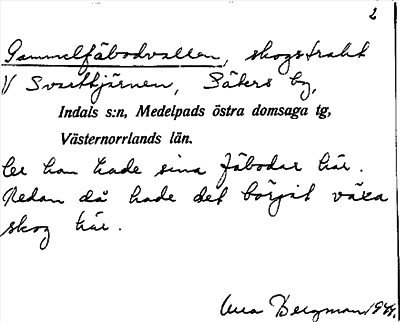 2
Gammelfäbodvallen, skogstrakt
V Svarttjärnen, Säters by,
Indals s:n, Medelpads östra domsaga tg,
Västernorrlands län.
han hade sina fäbodar här.
Redan då hade det börjat växa
skog här.
Bergman 194